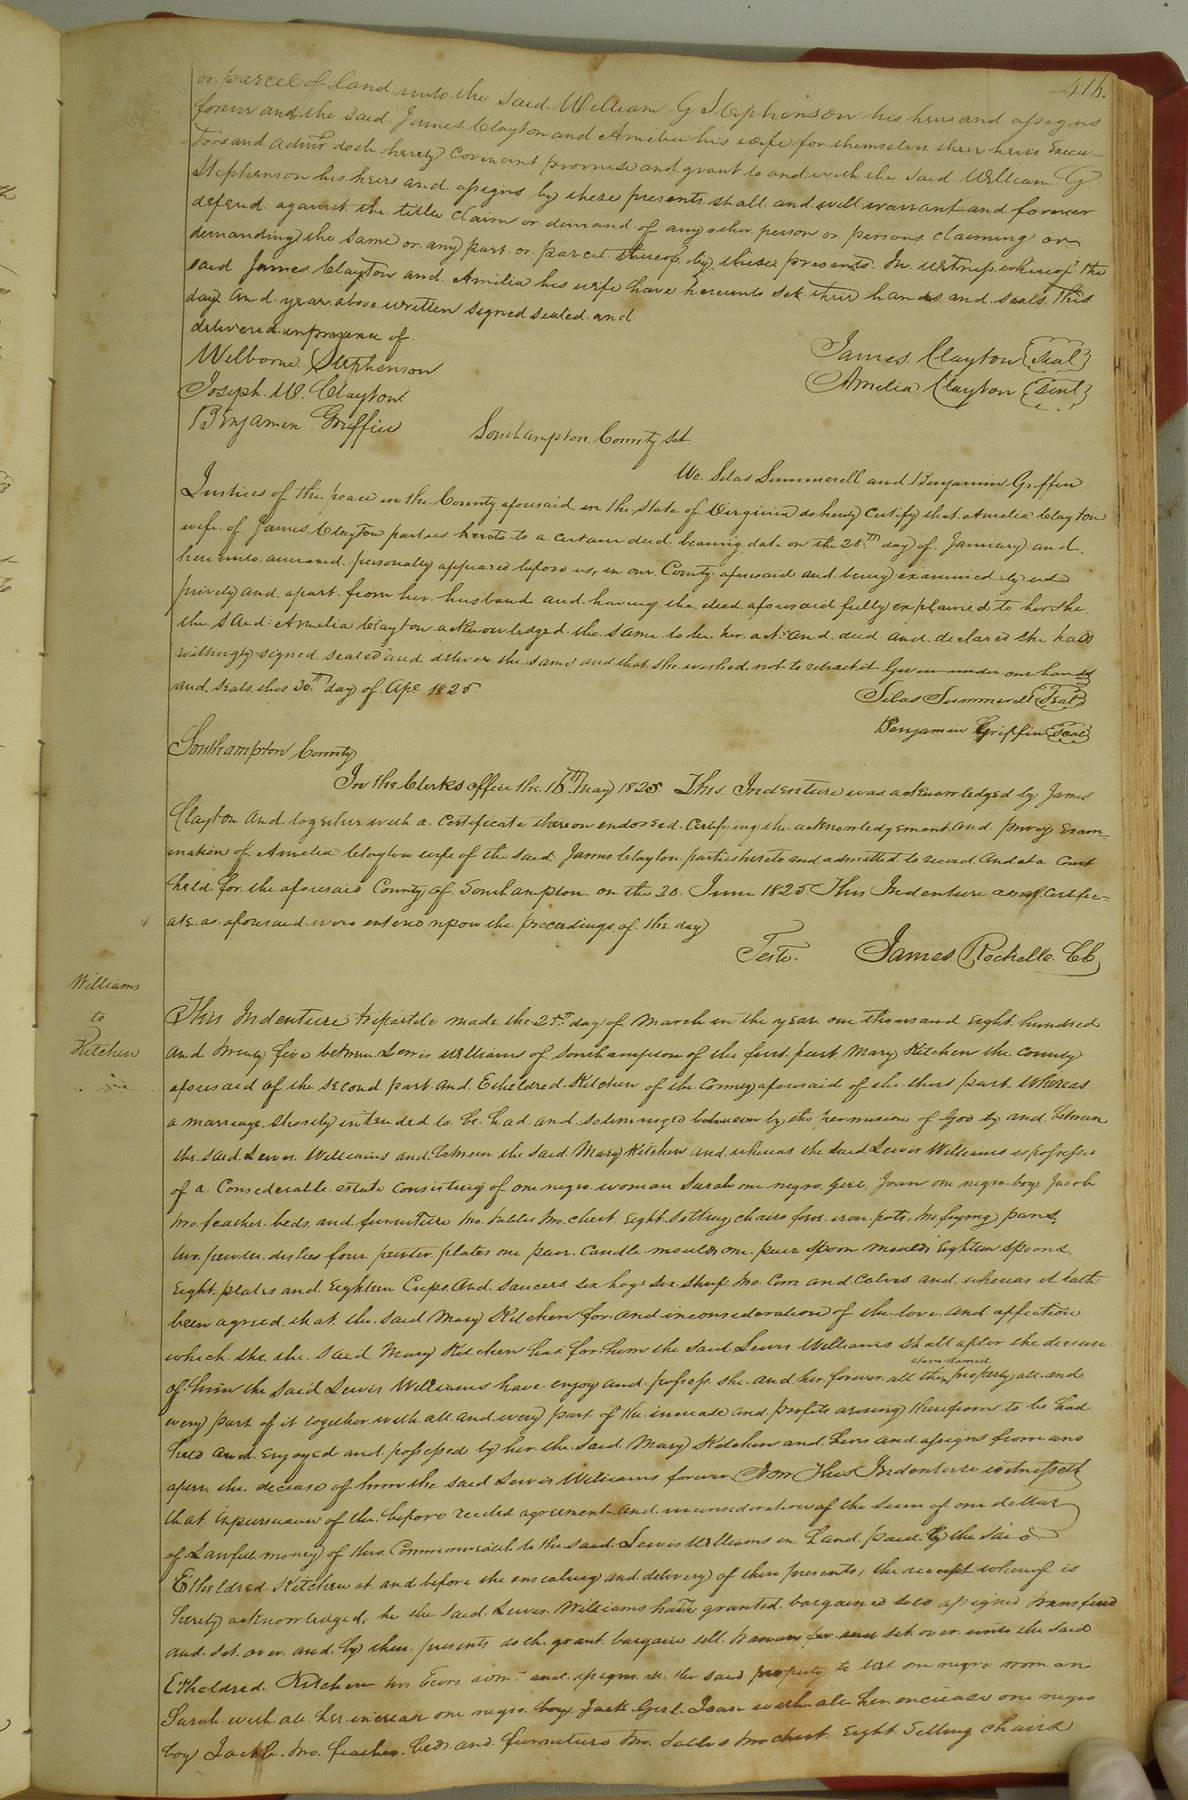 416.
or parcel of land unto the said William G Stephenson his heirs and assigns
forever and the said James Clayton and Amelia his wife for themselves their heirs Execu-
tors and admrs doth hereby covenant promise and grant to and with the said William G
Stephenson his heirs and assigns by these presents shall and will warrant and forever
defend against the title claim or demand of any other person or persons claiming or
demanding the same or any part or parcel thereof by these presents. In witness whereof the
said James Clayton and Amelia his wife have hereunto set their hands and seals this
day and year above written signed sealed and
delivered in presence of
Welborne Stephenson
James Clayton {Seal}
Joseph W. Clayton
Amelia Clayton {Seal}
Benjamin Griffin
Southampton County Sct
We Silas Summerell and Benjamin Griffin
Justices of the peace in the County aforesaid in the State of Virginia do hereby certify that Amelia Clayton
wife of James Clayton parties hereto to a certain deed bearing date on the 28th day of January and
hereunto annexed personally appeared before us, in our County aforesaid and being examined by us
privily and apart from her husband and having the deed aforesaid fully explained to her she
the said Amelia Clayton acknowledged the same to be her act and deed and declared she had
willingly signed sealed and deliver the same and that she wished not to retract it Given under our hands
and seals this 30th day of Ape 1825
Silas Summerell {Seal}
Benjamin Griffin {Seal}
Southampton County
In the Clerks office the 16th May 1825 This Indenture was acknowledged by James
Clayton and together with a certificate thereon endorsed certifying the acknowledgement and privy Exam-
ination of Amelia Clayton wife of the said James Clayton parties hereto and admitted to record And at a Court
held for the aforesaid County of Southampton on the 20 June 1825 This Indenture and Certific-
ate as aforesaid were entered upon the proceedings of the day
Teste. James Rochelle CC
Williams
to
Kitchen
This Indenture tripartite made the 25th day of March in the year one thousand Eight hundred
and twenty five between Lewis Williams of Southampton of the first part Mary Kitchen the County
aforesaid of the second part and Etheldred Kitchen of the County aforesaid of the third part Whereas
a marriage shortly intended to be had and solemnized between by the permission of God by and between
the said Lewis Williams and between the said Mary Kitchen and whereas the said Lewis Williams is possessed
of a Considerable estate consisting of one negro woman Sarah one negro Girl Joan one negro boy Jacob
two feather beds and furniture two tables two chest Eight Setting chairs four iron pots two frying pans
two pewter dishes four pewter plates one pair candle moulds one pair spoon moulds Eighteen spoons
Eight plates and Eighteen Cups and Saucers six hogs six sheep two Cows and Calves and whereas it hath
been agreed that the said Mary Kitchen for and in consideration of the love and affection
which she the said Mary Kitchen has for him the said Lewis Williams shall after the decease
of him the said Lewis Williams have enjoy and possess she and her forever all the above named property all and
every part of it together with all and every part of the increase and profits arising therefrom to be had
held and enjoyed and possessed by her the said Mary Kitchen and heirs and assigns from and
after the decease of him the said Lewis Williams forever Now This Indenture witnesseth
that in pursuance of the before recited agreement and in consideration of the sum of one dollar
of Lawful money of this Commonwealth to the said Lewis Williams in hand paid by the said
Etheldred Kitchen at and before the ensealing and delivery of these presents, the receipt whereof is
hereby acknowledged, he the said Lewis Williams hath granted bargained sold assigned transfered
and set over and by these presents doth grant bargain sell set over unto the said
Etheldred Kitchen his Exors adms and assigns all the said property to wit one negro woman
Sarah with all her increase one negro boy Jack Girl Joan with all her increase one negro
boy Jacob two feather beds and furniture two tables two chest Eight Setting chairs